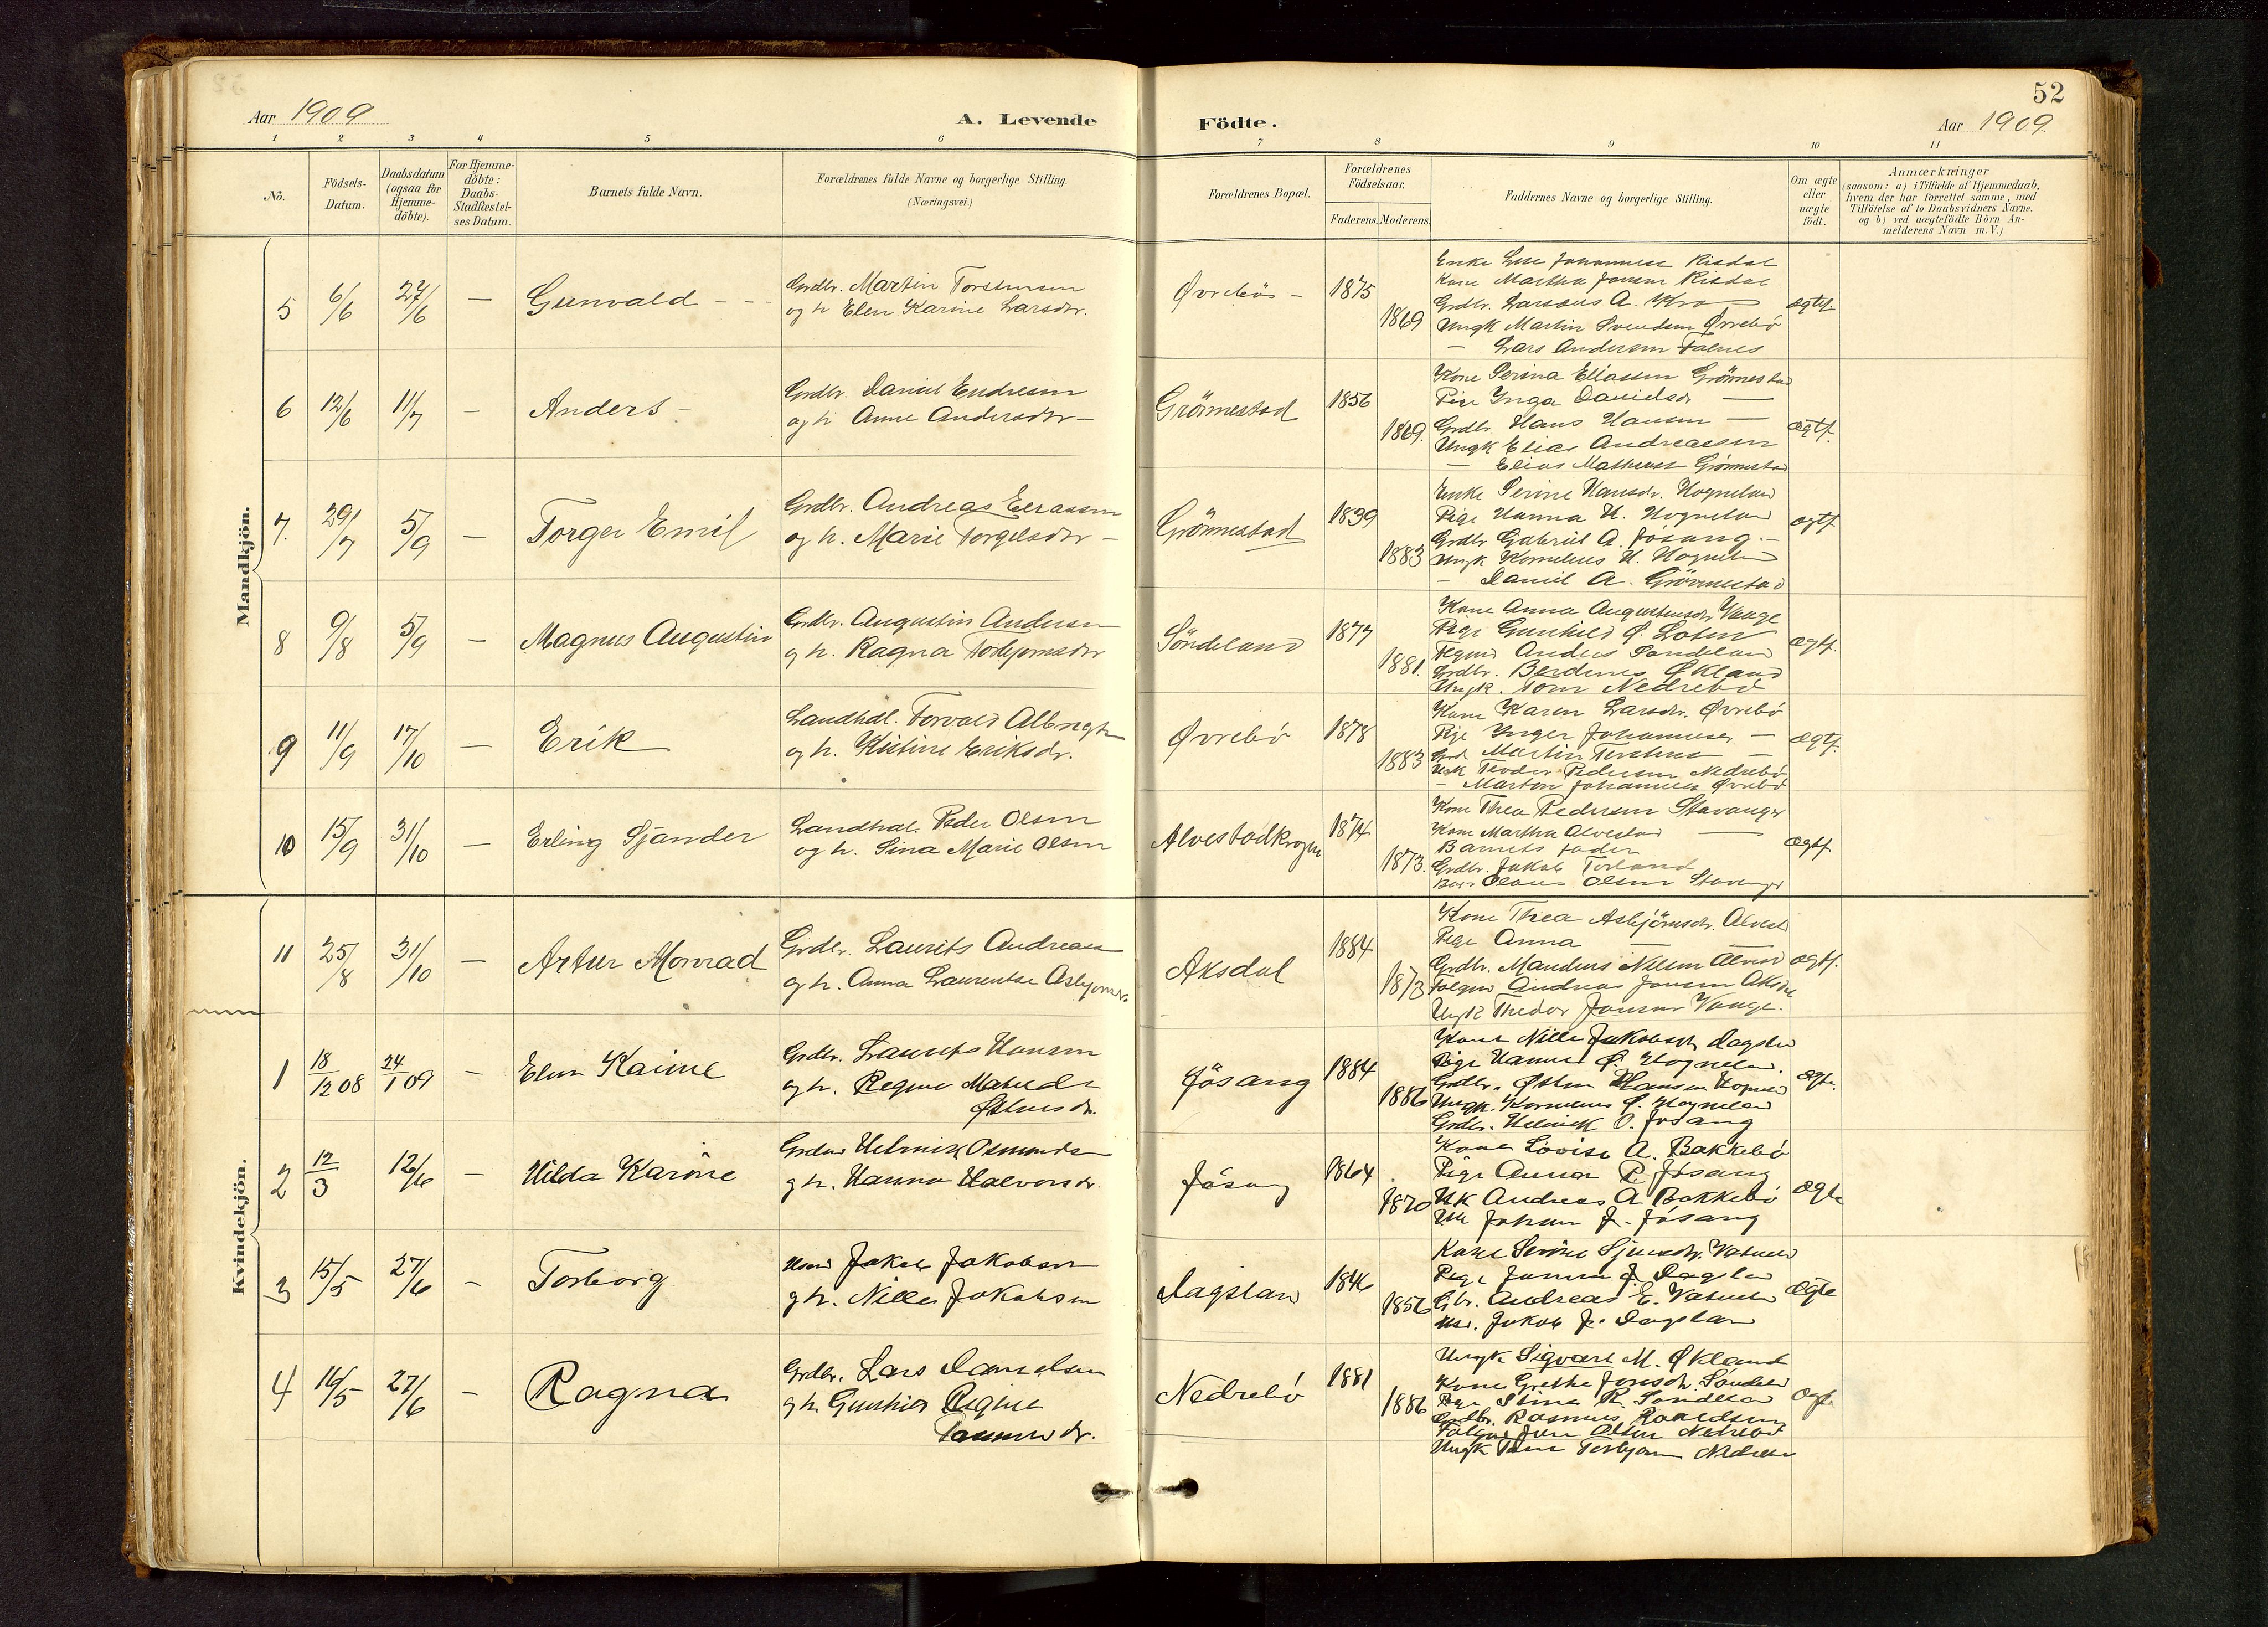 52
Aar 1909
A. Levende
Födte.
Aar 1909.
1 2 3 4 5 6 7 8 9 10 11
No.
Födsels-Datum.
Daabsdatum (ogsaa for Hjemme-döbte).
For Hjemme-döbte: Daabs-Stadfæstel-ses Datum.
Barnets fulde Navn.
Forældrenes fulde Navne og borgerlige Stilling. (Næringsvei.)
Forældrenes Bopæl.
Forældrenes Födselsaar.
Faderens. Moderens.
Faddernes Navne og borgerlige Stilling.
Om ægte eller uægte födt.
Anmærkninger
(saasom: a) i Tilfælde af Hjemmedaab,
hvem der har forrettet samme, med
Tilföielse af to Daabsvidners Navne,
og b) ved uægtefödte Börn An-
melderens Navn m. V.)
Mandkjön.
5 6/6 27/6 — Gunvald
Grdbr. Martin Torstensen
og h. Elen Karine Larsdtr.
Øvrebö — 1875 1869
Enke Johannesen Risdal
Kone Martha Jansen Risdal
Grdbr. A.
Ungk Martin Svendsen Øvrebö
— Lars Andersen
ægtf.
6 12/6 11/7 — Anders —
Grdbr. Daniel Endresen
og h. Anne Andersdtr —
Grönnestad 1856 1869.
Kone Serina Eliassen Grönnestad
Pige Inga Danielsdr —
Grdbr. Hans Hansen —
Ungk Elias Andreassen
— Elias Mathiesen Grönnestad
ægtf.
7. 29/7 5/9 — Torger Emil
Grdbr. Andreas
og h. Marie Torgelsdtr —
Grönnestad 1883
Enke Serine Hansdr. Hogneland
Pige Hanna H. Hogneland
Grdbr Gabriel A. Jösang —
Ungk Kornelius H. Hogneland
— Daniel A. Grönnestad
ægtf.
8 9/8 5/9 — Magnus Augustin
Grdbr. Augustin Andersen
og h. Ragna Torbjornsdtr
Söndeland 1877 1881.
Kone Anna Augustinsdr Vaage
Pige Gunhild Ø.
Anders Söndeland
Grdbr. Økland
Ungk. Tom Nedrebö
ægtf.
9 11/9 17/10 — Erik
Landhdl. Torvald
og h. Kistine Eriksdr.
Øvrebö 1878 1883
Kone Karen Larsdr. Øvrebö
Pige Inger Johannesen —
Martin Torstensen —
Teodor Pedersen Nedrebö
— Marton Johannesen Øvrebö
ægtf.
10 15/9 31/10 — Erling Sjander
Landhdl. Peder Olsen
og h. Sina Marie Olsen
Alvestadkrogen 1874 1873.
Kone Thea Pedersen Stavanger
Kone Martha Alvestad —
Barnets fader
Grdbr. Jakob
Olsen Stavanger
ægtf.
11 25/8 31/10 — Artur Monrad
Grdbr. Laurits Andreasen
og h. Anna Laurentse Asbjornsdr.
Aksdal 1884 1873
Kone Thea Asbjörnsdr. Alvestad
Pige Anna — —
Grdbr. Nilsen Alvestad
Andreas Jansen Aksdal
Ungk Thedor Jansen Vaage.
ægtf.
Kvindekjön.
1 18/12 08 24/1 09 — Elen Kaime
Grdbr. Laurits Hansen
og h. Regine
Østensdr.
Jösang 1884 1886
Kone Nille Jakobsdr Dagsland
Pige Hanna Ø. Hogneland.
Grdbr. Østen Hansen Hogneland
Ungk. Kornelius Ø. Hogneland
Grdbr. Helmik O. Jösang
ægte.
2 12/3 12/6 — Hilda Karine
Helmik Osmundsen
og h. Hanna Halvorsdr.
Jösang 1864 1870
Kone Lovise A. Bakkebö
Pige Anna R. Jösang
UK Andreas A Bakkebö
Uk Johan J. Jösang
ægte
3 15/5 27/6 — Torborg
Jakob Jakobsen
og h. Nille Jakobsen
Dagsland 1846 1856
Kone Serine
Pige J. Dagsland
Gbr. Andreas E.
Jakob J. Dagsland
ægte
4 14/5 27/6 — Ragna
Grdbr. Lars Danielsen
og h. Gunhild Regine
Nedrebö 1881 1886
Ungk Sigvart M. Økland
Kone Grethe Jonsdr.
Pige Stina R.
Grdbr. Rasmus
Olsen Nedrebö
Ungk Nedrebö
ægte